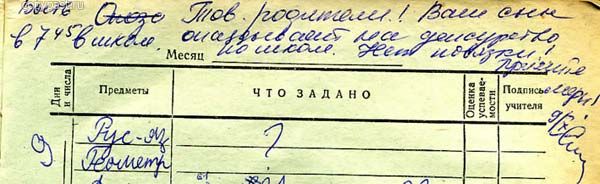 Быть Опозд Тов. родители! Ваш сын
в 7 45 в школе. опаздывает на дежурство
по школе. Нет повязки!
Примите меры!
Месяц
Дни и числа Предметы ЧТО ЗАДАНО Оценка успевае-мости Подпись учителя
9/X
9 Рус-яз ?
Геометр